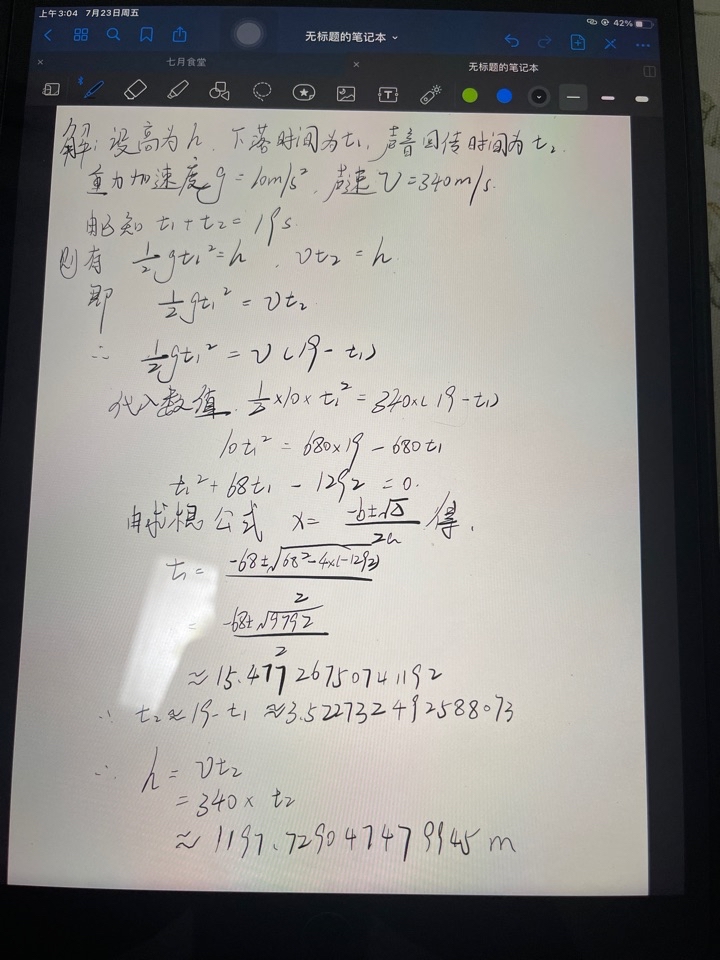 上午3:04 7月23日周五
42%
无标题的笔记本
七月食堂
无标题的笔记本
解：设高为h，下落时间为t₁，声音回传时间为t₂.
重力加速度g=10m/s²，声速V=340m/s.
由已知 t₁+t₂=19s
则有 ½gt₁²=h，vt₂=h.
即 ½gt₁²=vt₂
∴ ½gt₁²=v(19-t₁)
代入数值. ½×10×t₁²=340×(19-t₁)
10t₁²=680×19-680t₁
t₁²+68t₁-1292=0.
由求根公式 x=(-b±√Δ)/2a 得.
t₁=(-68±√(68²-4×(-1292)))/2
=(-68±√9792)/2
≈15.47726750741192
∴ t₂≈19-t₁≈3.522732492588073
∴ h=vt₂
=340×t₂
≈1197.729047479945m